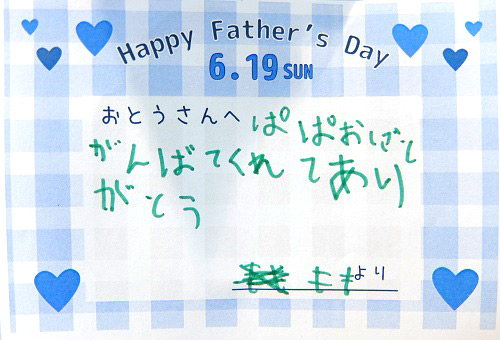 Happy Father's Day
6.19 SUN
おとうさんへ ぱぱおしごと
がんばてくれてあり
がとう
より